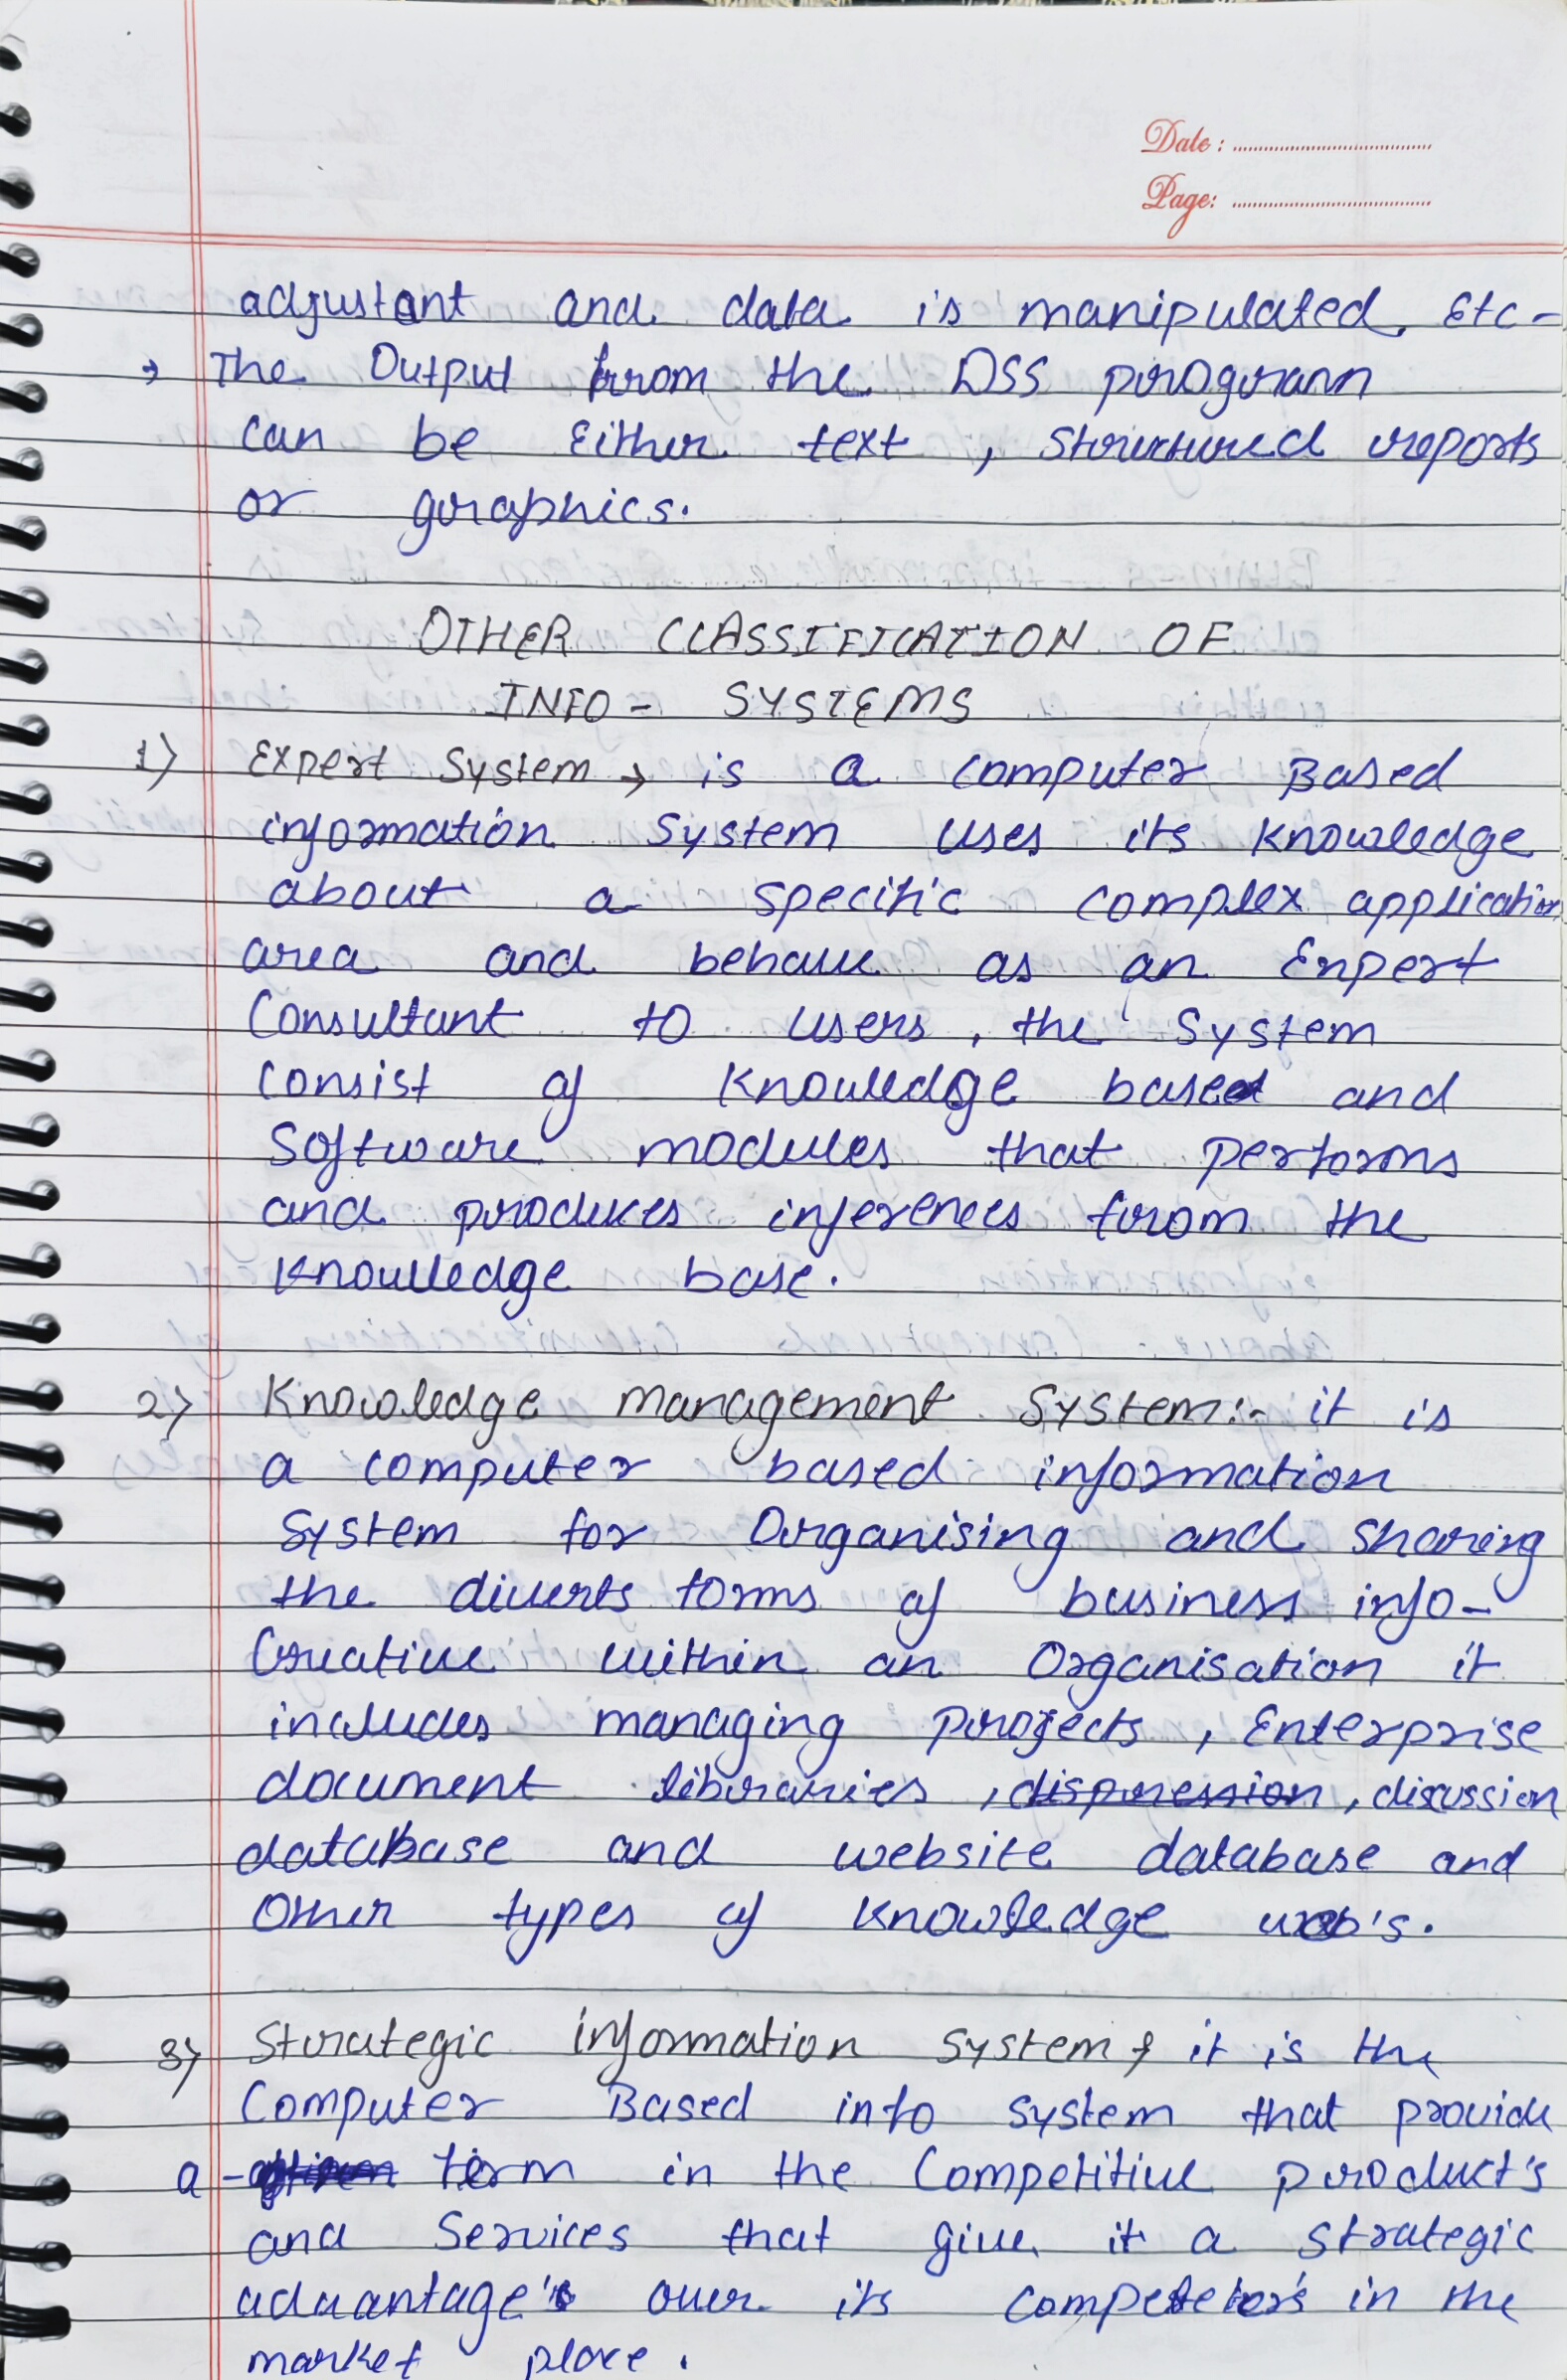 Date :
Page:
adjustant and data is manipulated, Etc-
→ The Output from the DSS program
can be Either text , structured reports
or graphics.
OTHER CLASSIFICATION OF
INFO- SYSTEMS
1) Expert System → is a computer Based
information System uses its knowledge
about a specific complex application
area and behave as an Expert
Consultant to users , the System
Consist of Knowledge based and
Software modules that performs
and produces inferences from the
Knowledge base.
2) Knowledge management System:- it is
a computer based information
System for Organising and sharing
the diverts forms of business info-
Creative within an Organisation it
includes managing projects , Enterprise
document libraries , dispression , discussion
database and website database and
Other types of knowledge web's.
3) Strategic information System → it is the
Computer Based info system that provide
a - term in the Competitive product's
and Services that give it a strategic
advantage's over its competetor's in the
market place .